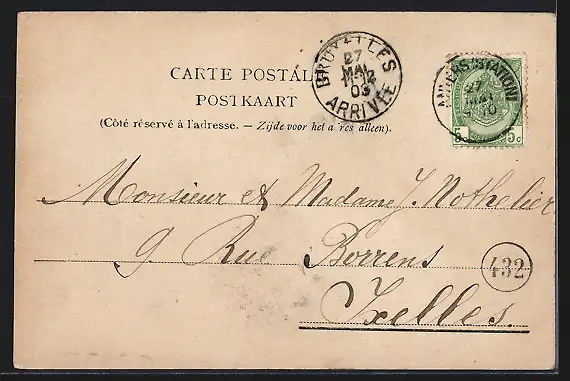 BRUXELLES
27
MAI
11-12
03
ARRIVÉE
ANVERS (STATION)
27
MAI
5 5c
CARTE POSTALE
POSTKAART
(Côté réservé à l'adresse. — Zijde voor het adres alleen).
Monsieur et Madame J. Nothelier
9 Rue Borrens
432
Ixelles.